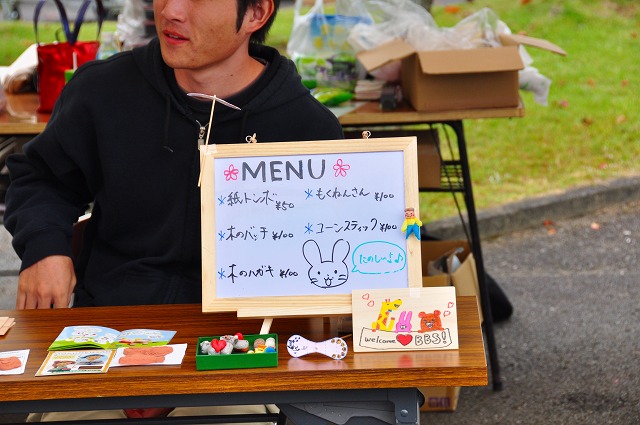 MENU
*紙トンボ ¥50
*もくねんさん ¥100
*木のバッチ ¥100
*コーンスティック ¥100
*木のハガキ ¥100
たのしーよ♪
welcome ♥ BBS!